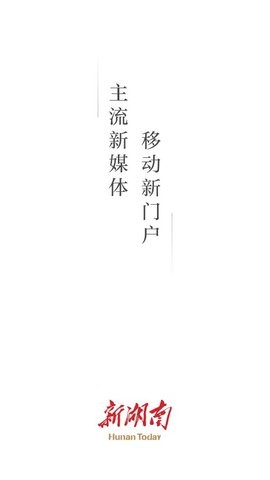 主流新媒体
移动新门户
新湖南
Hunan Today